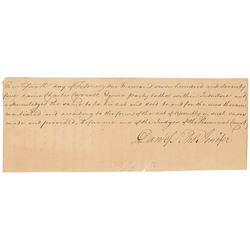 day of February one thousand seven hundred and seventy
four came Charles Carroll Esquire party to the within Indenture and
acknowledged the same to be his act and deed to and for the uses therein
mentioned and according to the form of the act of Assembly in that case
made and provided, Before one of the Judges of the Provincial Court
Dan of St Thos Jenifer